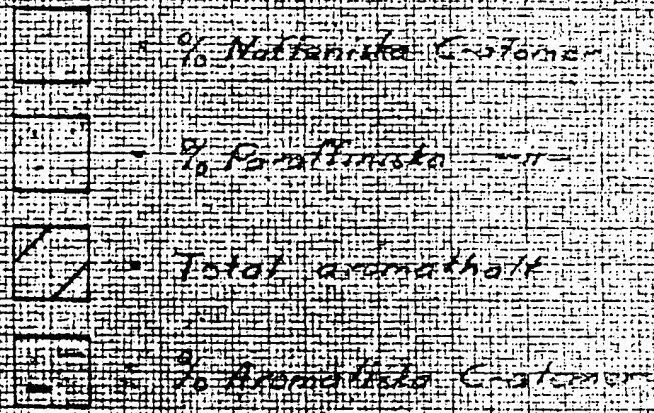 = % Nafteniska C-atomer
= % Paraffiniska —"—
= Total aromathalt
= % Aromatiska C-atomer